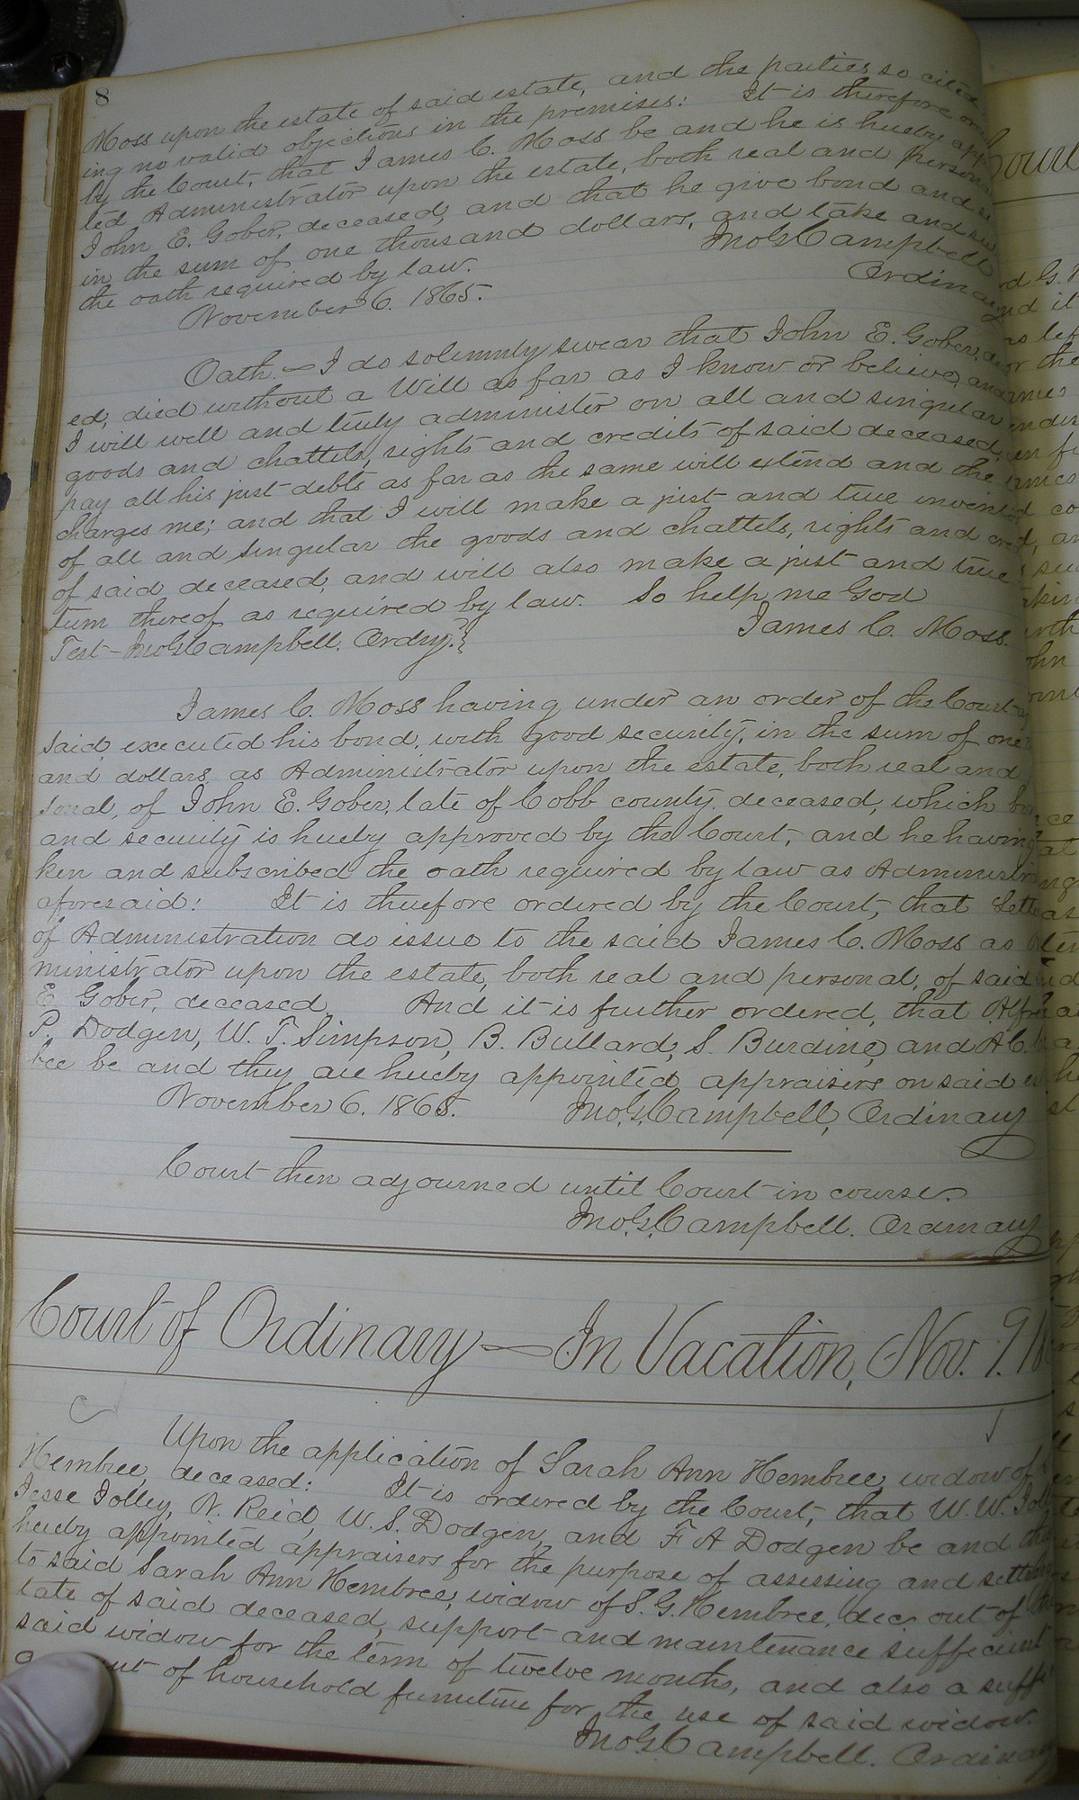 8
Moss upon the estate of said estate, and the parties so cited
ing no valid objections in the premises: It is therefore or
by the Court, that James C. Moss be and he is hereby app
ted Administrator upon the estate, both real and person
John E. Gober, deceased, and that he give bond and se
in the sum of one thousand dollars, and take and su
the oath required by law. Jno. G. Campbell
November 6. 1865. Ordinary
Oath — I do solemnly swear that John E. Gober, de
ed, died without a Will as far as I know or believe, and
I will well and truly administer on all and singular
goods and chattels, rights and credits of said deceased,
pay all his just debts as far as the same will extend and the
charges me; and that I will make a just and true invent
of all and singular the goods and chattels, rights and cred
of said deceased, and will also make a just and true
turn thereof as required by law. So help me God
Test — Jno. G. Campbell. Ordry.} James C. Moss.
James C. Moss having under an order of the Court
said, executed his bond, with good security, in the sum of one
and dollars, as Administrator upon the estate, both real and
sonal, of John E. Gober, late of Cobb county, deceased, which bo
and security is hereby approved by the Court, and he having
ken and subscribed the oath required by law as Administr
aforesaid: It is therefore ordered by the Court, that Lette
of Administration do issue to the said James C. Moss as
ministrator upon the estate, both real and personal, of said
E. Gober, deceased. And it is further ordered, that Alfr
P. Dodgen, W. T. Simpson, B. Bullard, S. Burdine, and A. C.
bee be and they are hereby appointed appraisers on said es
November 6. 1865. Jno. G. Campbell, Ordinary
Court then adjourned until Court in course.
Jno. G. Campbell. Ordinary
Court of Ordinary — In Vacation, Nov. 9. 18
Upon the application of Sarah Ann Hembree, widow of
Hembree, deceased: It is ordered by the Court, that W. W. Joll
Jesse Jolley, N. Reid, W. S. Dodgen, and F. A Dodgen be and the
hereby appointed appraisers for the purpose of assessing and settl
to said Sarah Ann Hembree, widow of S. G. Hembree, dec. out of
tate of said deceased, support and maintenance sufficient
said widow for the term of twelve months, and also a suff
of household furniture for the use of said widow.
Jno. G. Campbell. Ordinary